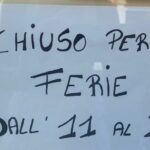 CHIUSO PER
FERIE
DALL' 11 AL